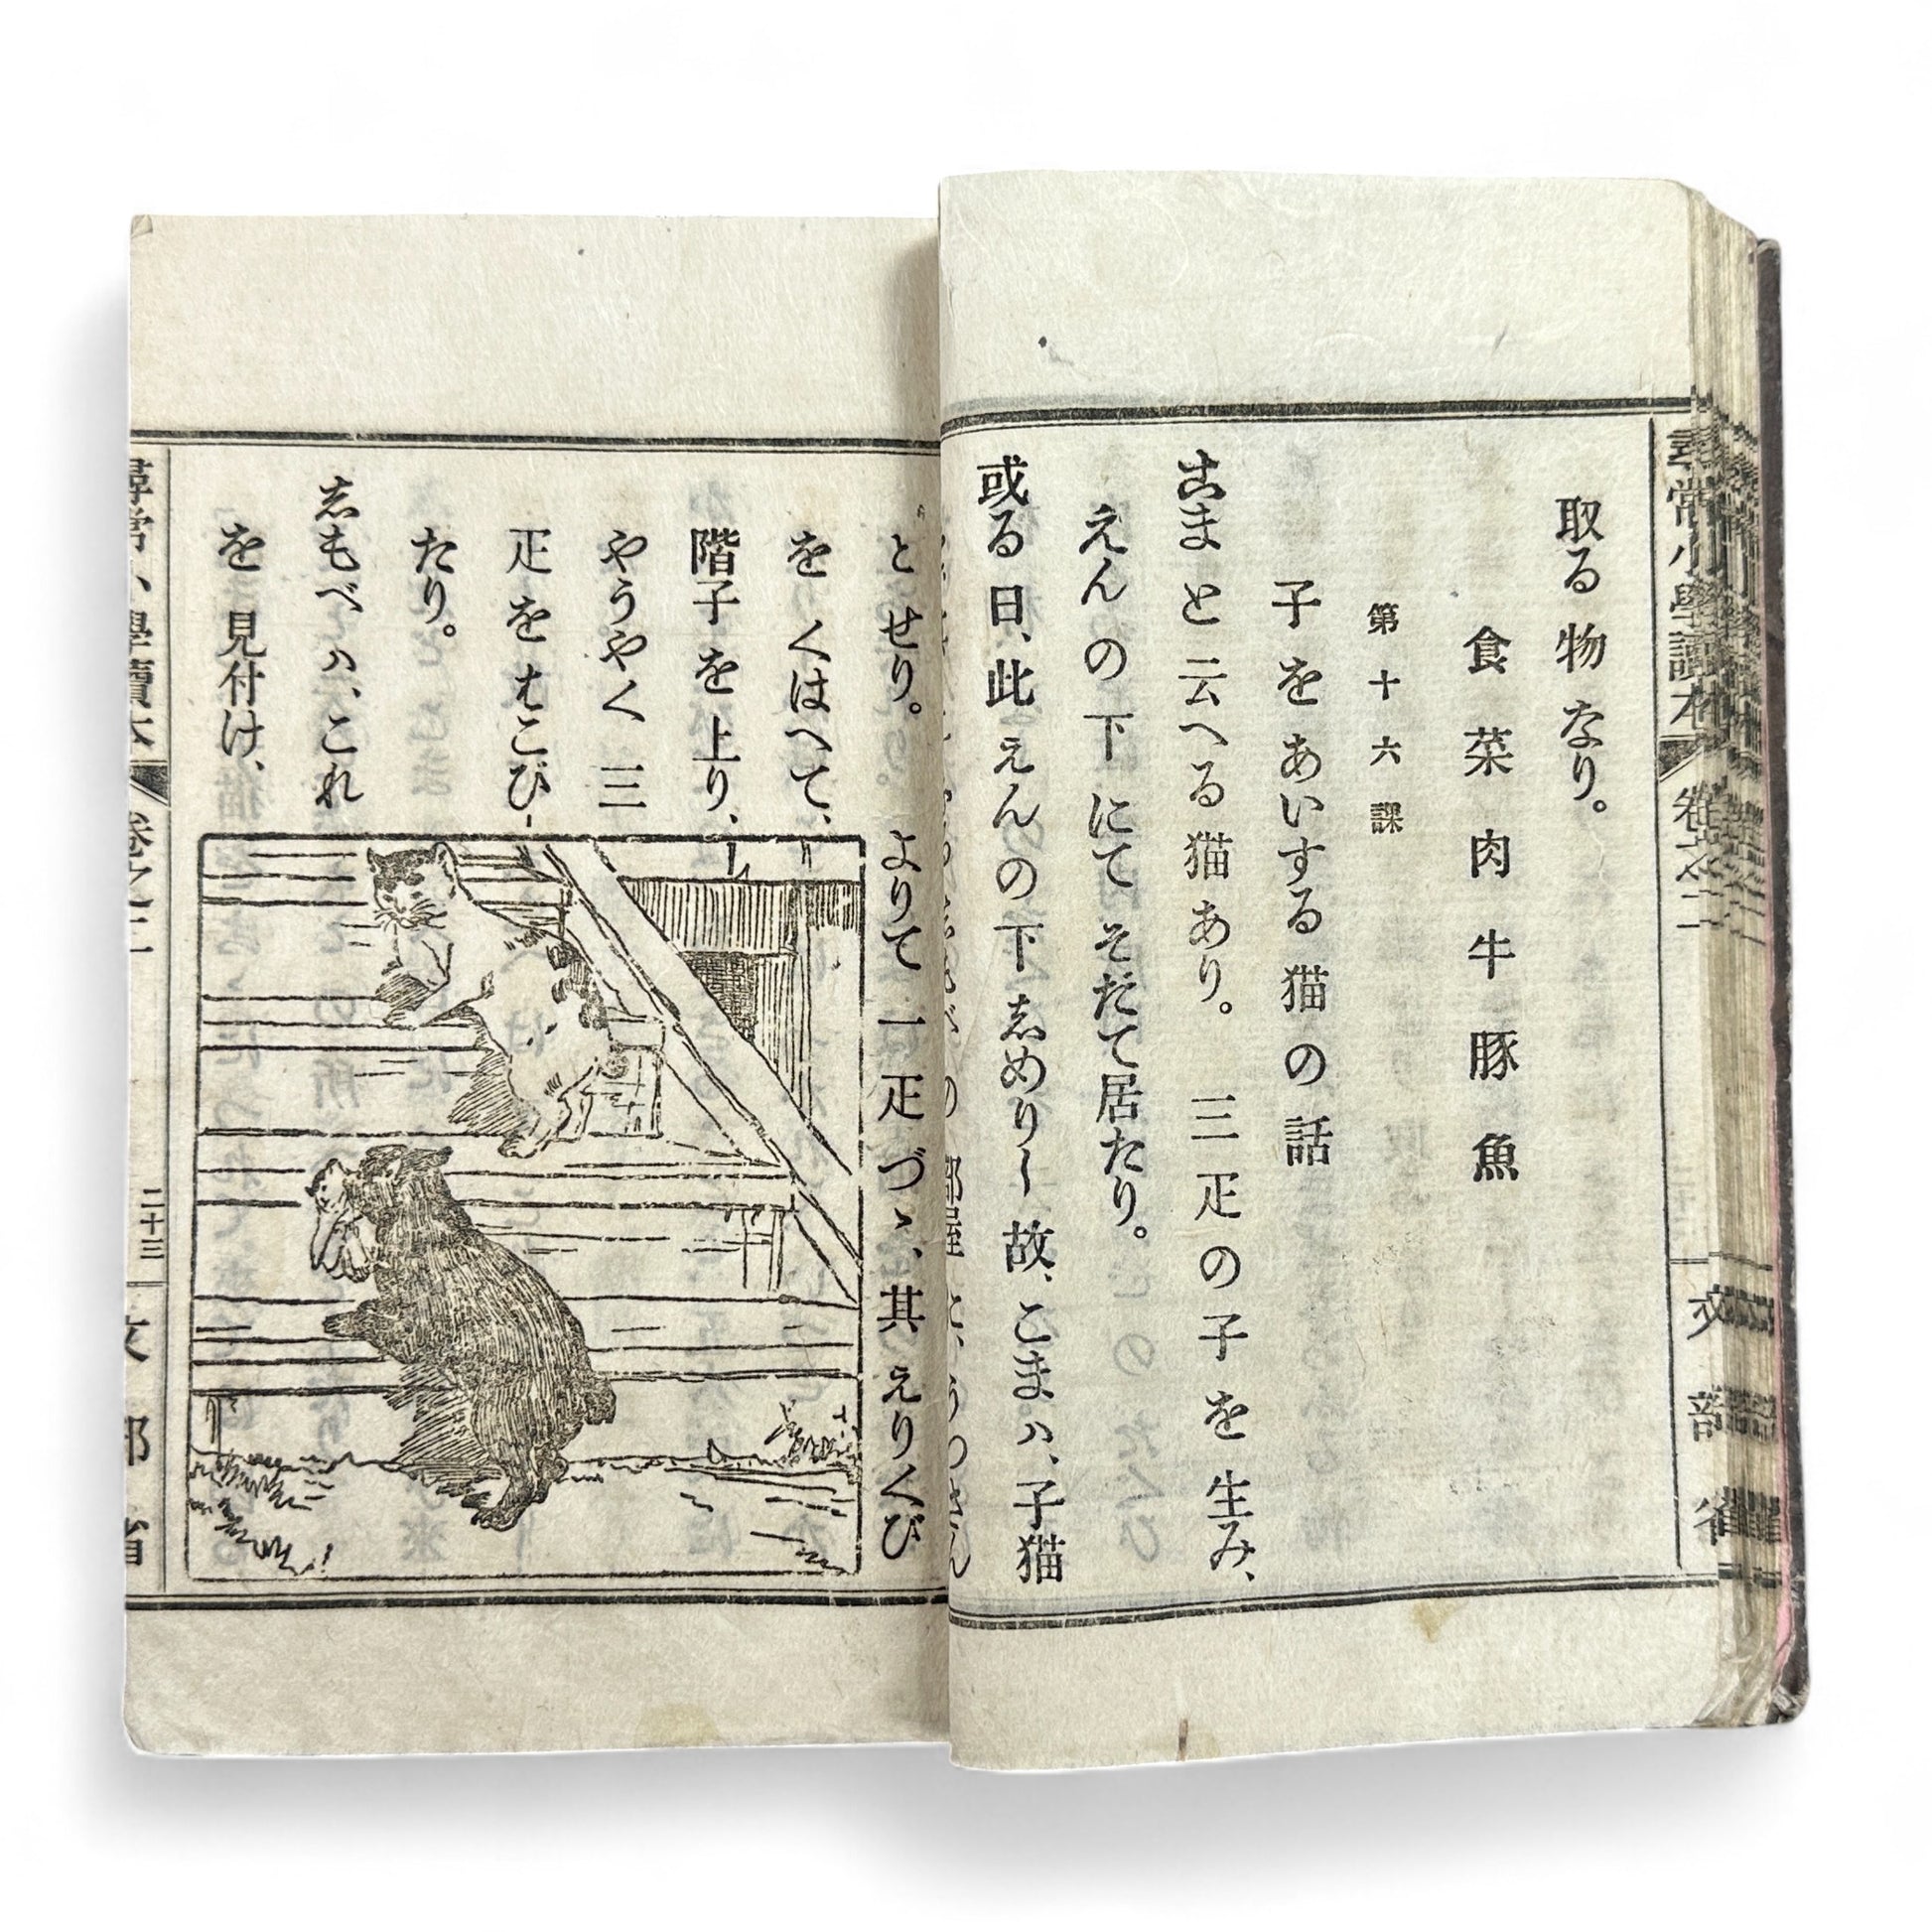 取る物なり。
食 菜 肉 牛 豚 魚
第十六課
子をあいする猫の話
こまと云へる猫あり。三疋の子を生み、
えんの下にてそだて居たり。
或る日、此えんの下しめりし故、こまハ、子猫
とせり。よりて一疋づゝ、其えりくび
をくはへて、
階子を上り、
やうやく三
疋をはこび
たり。
しもべハ、これ
を見付け、
尋常小學讀本
卷之二
二十三
文部省